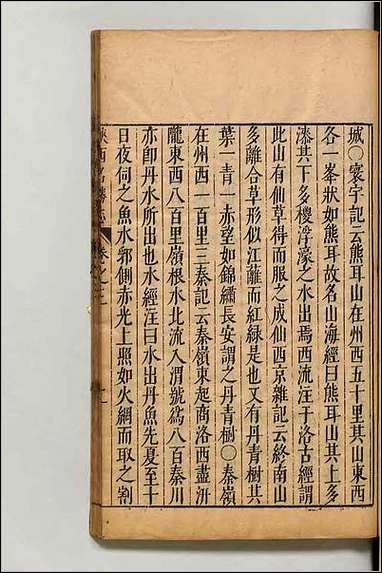 城○寰宇記云熊耳山在州西五十里其山東西
各一峯狀如熊耳故名山海經曰熊耳山其上多
漆其下多椶浮濠之水出焉西流注于洛古經謂
此山有仙草得而服之成仙西京雜記云終南山
多離合草形似江蘺而紅綠是也又有丹青樹其
葉一青一赤望如錦繡長安謂之丹青樹○秦嶺
在州西一百里三秦記云秦嶺東起商洛西盡汧
隴東西八百里嶺根水北流入渭號為八百秦川
亦卽丹水所出也水經注曰水出丹魚先夏至十
日夜伺之魚水郭側赤光上照如火網而取之割
陝西名勝志 卷之三